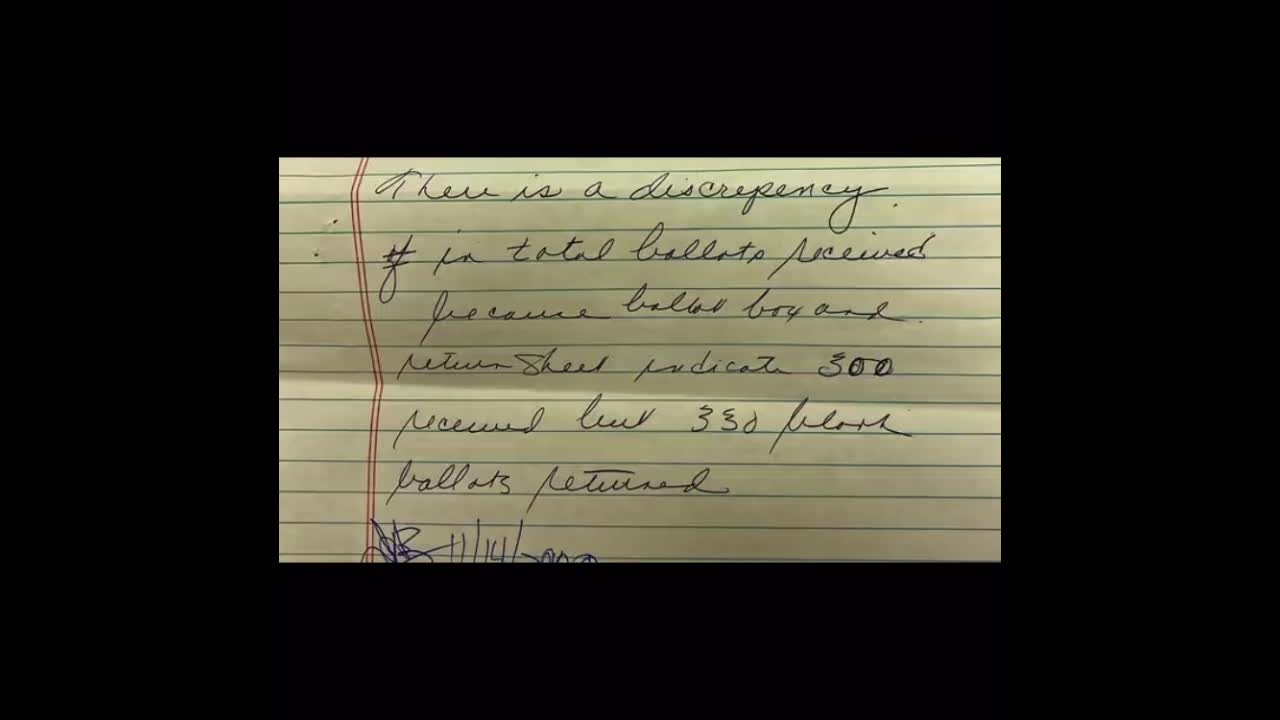 There is a discrepency
# in total ballots received
because ballot box and
return sheet indicate 300
received but 330 blank
ballots returned
11/14/